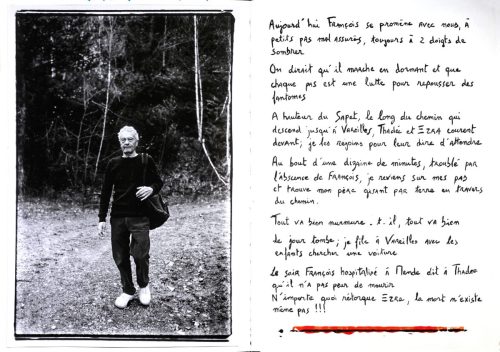 Aujourd'hui François se promène avec nous, à
petits pas mal assurés, toujours à 2 doigts de
sombrer
On dirait qu'il marche en dormant et que
chaque pas est une lutte pour repousser des
fantomes
A hauteur du Sapet, le long du chemin qui
descend jusqu'à Vareilles, Thadée et EZRA courent
devant; je les rejoins pour leur dire d'attendre
Au bout d'une dizaine de minutes, troublé par
l'abscence de FRANÇOIS, je reviens sur mes pas
et trouve mon père gisant par terre en travers
du chemin.
Tout va bien murmure-t-il, tout va bien
Le jour tombe; je file à Vareilles avec les
enfants chercher une voiture
Le soir François hospitalisé à Mende dit à Thadée
qu'il n'a pas peur de mourir
N'importe quoi rétorque EZRA, la mort n'existe
même pas !!!